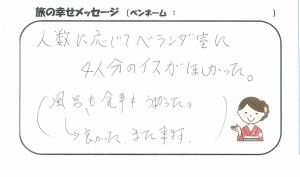 旅の幸せメッセージ（ペンネーム： ）
人数に応じてベランダ室に
4人分のイスがほしかった。
（風呂も食事も
→良かった、また来ます。）